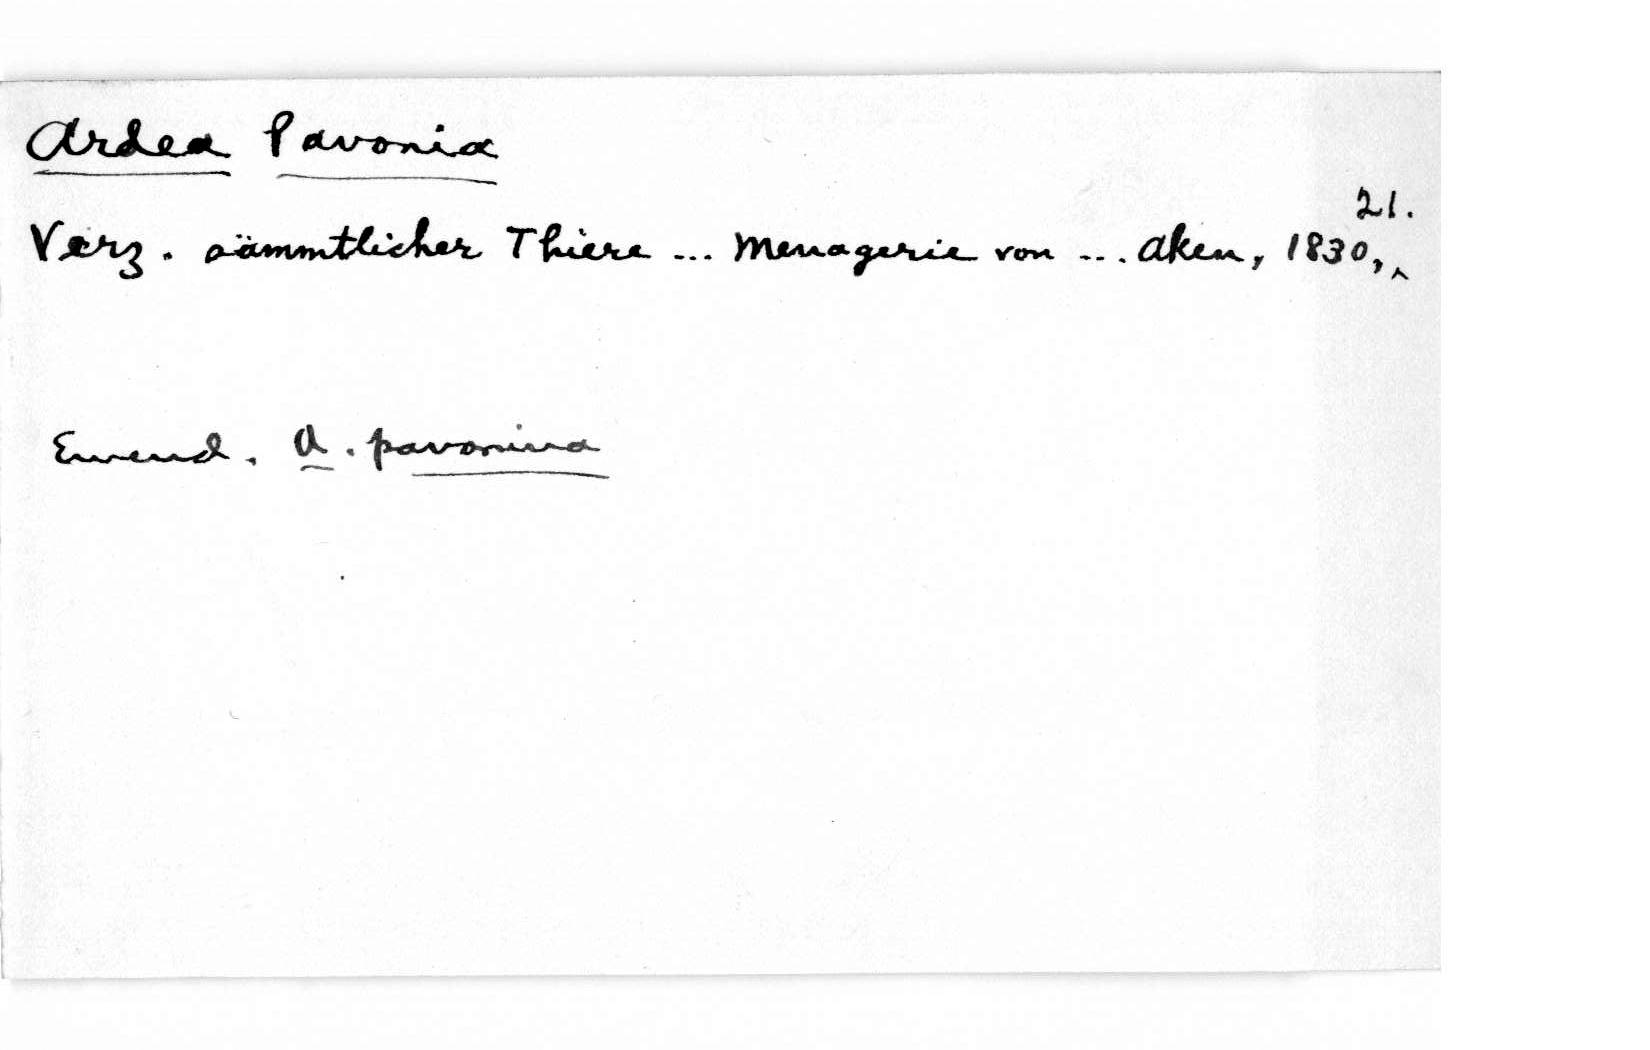 Ardea Pavonia
Verz. sämmtlicher Thiere ... Menagerie von ... Aken, 1830, 21.
Emend. A. pavonina